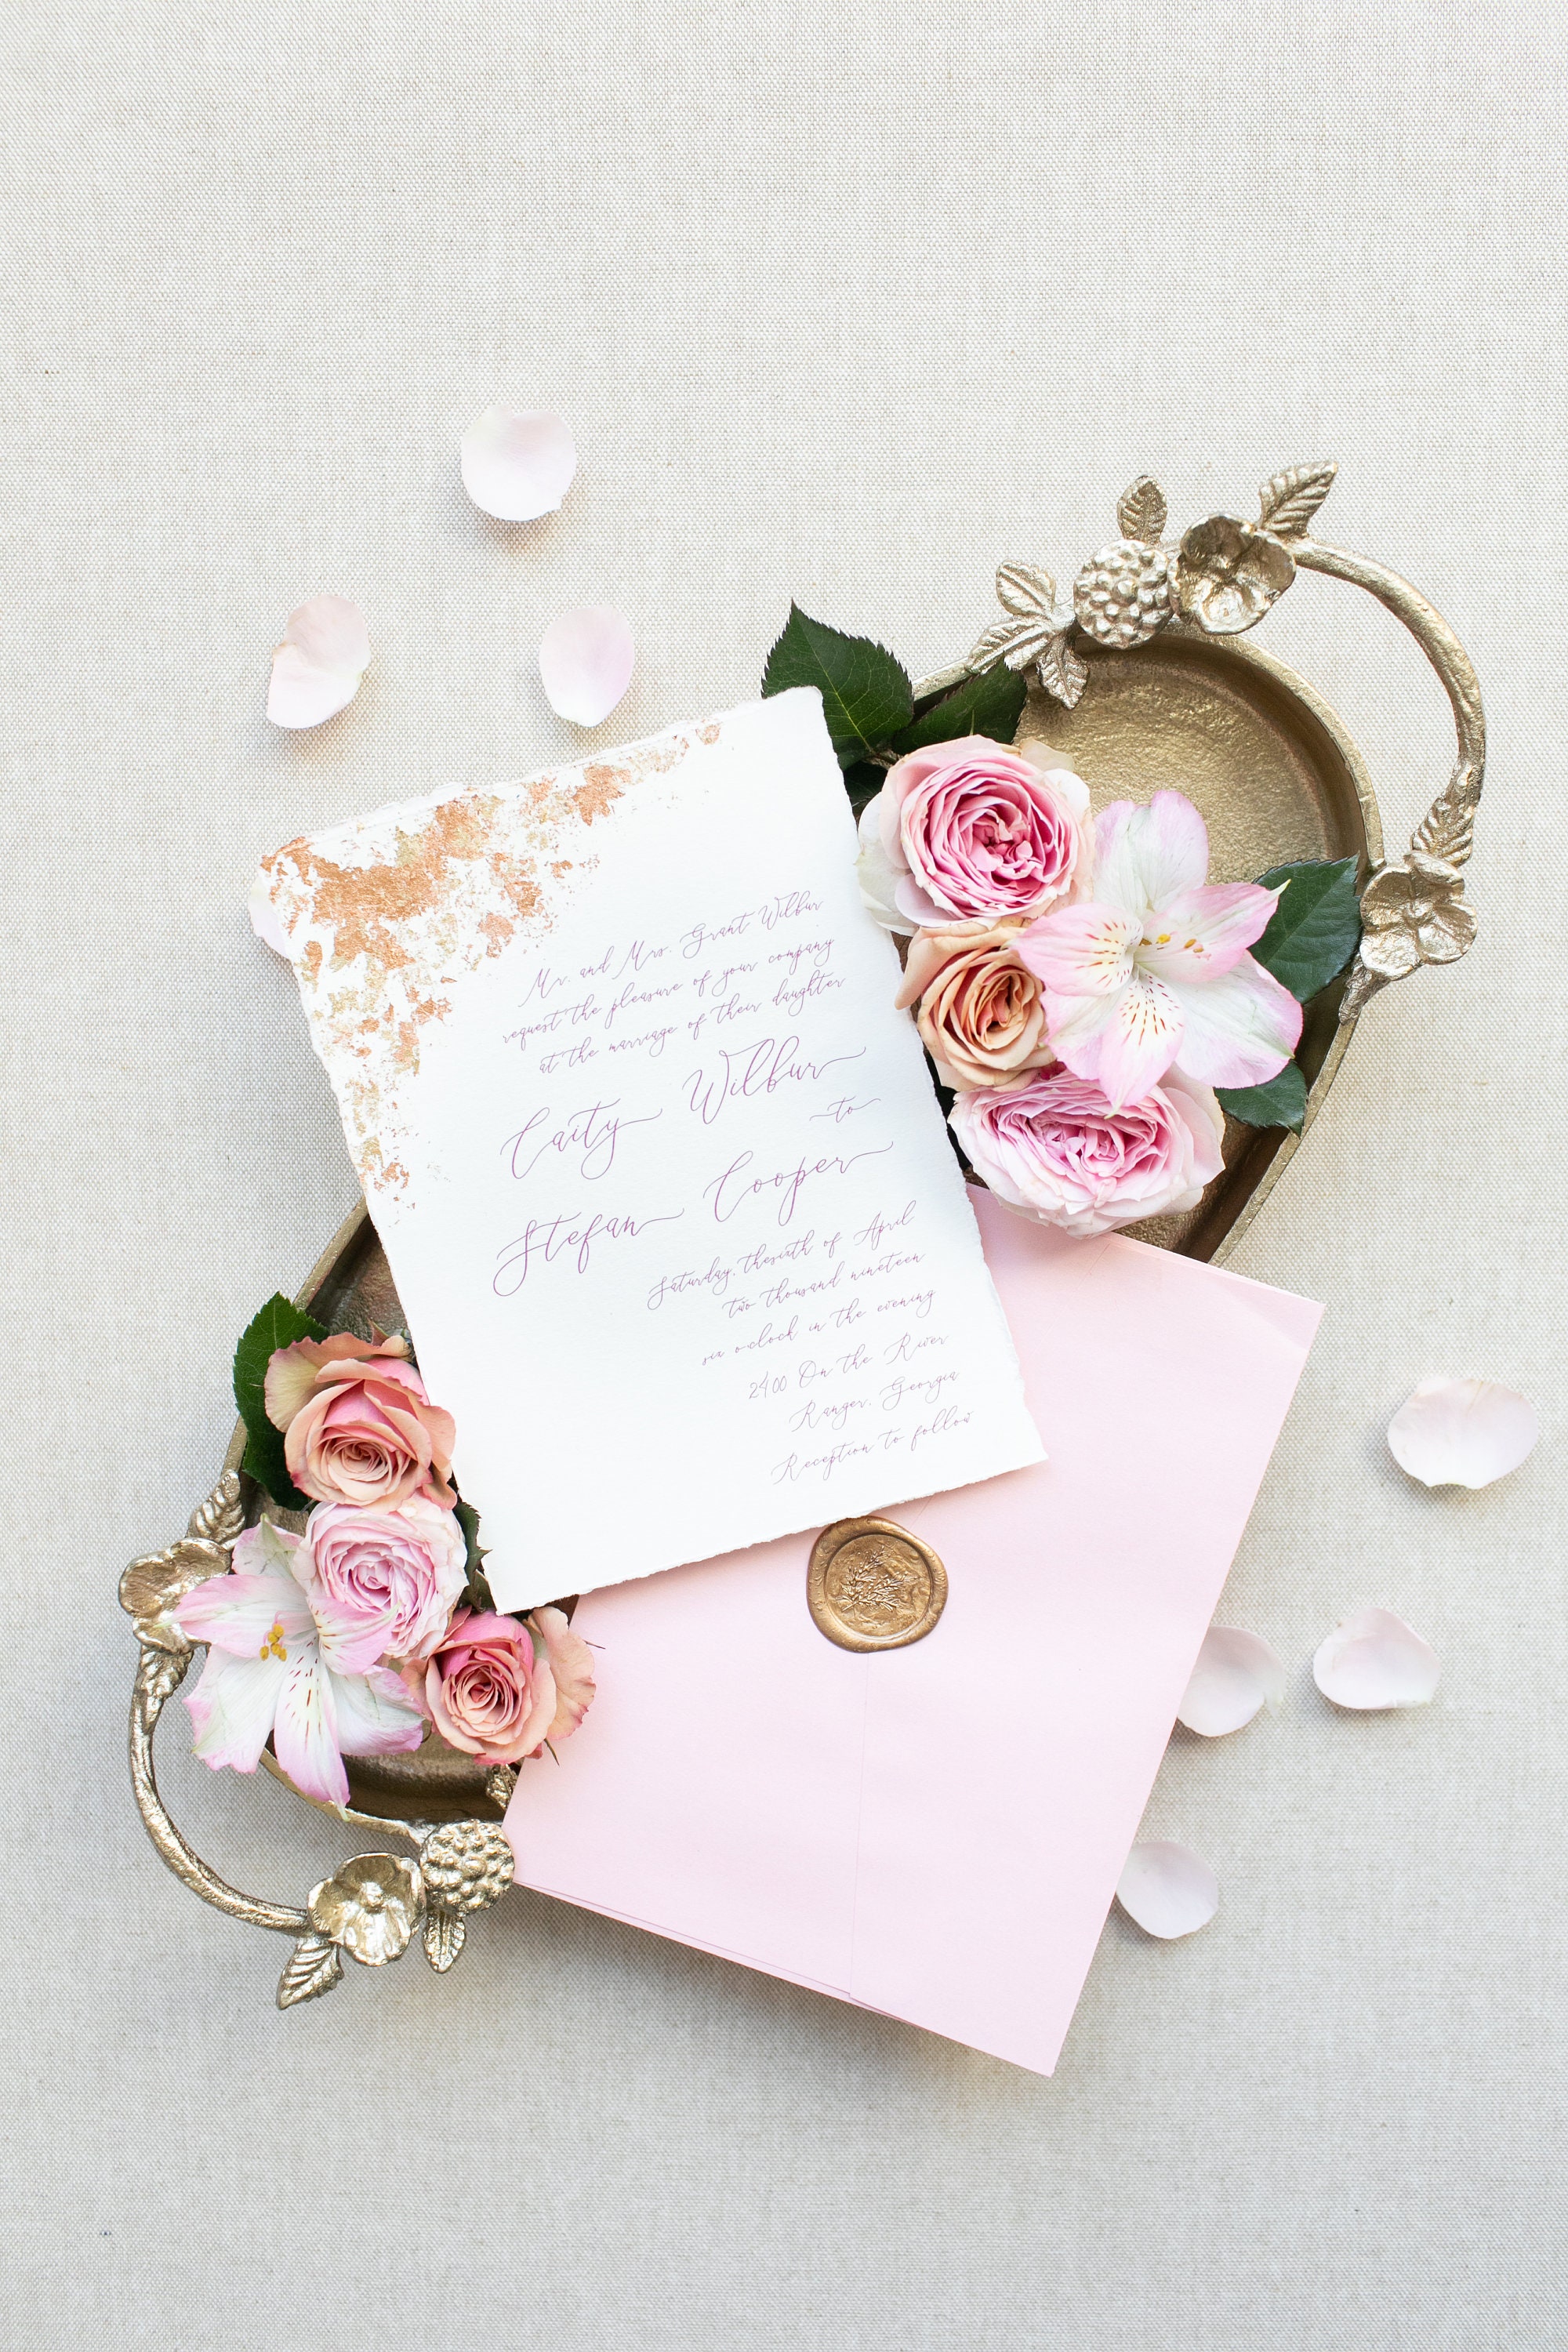 Mr. and Mrs. Grant Wilbur
request the pleasure of your company
at the marriage of their daughter
Caity Wilbur
to
Stefan Cooper
Saturday, thesixth of April
two thousand nineteen
six o'clock in the evening
2400 On the River
Ranger, Georgia
Reception to follow